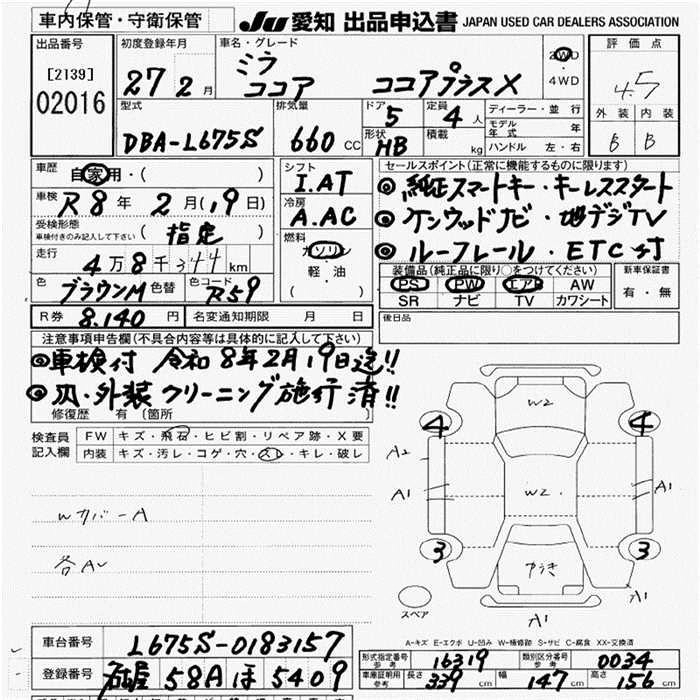 車内保管・守衛保管
JU 愛知 出品申込書 JAPAN USED CAR DEALERS ASSOCIATION
出品番号
[2139]
02016
初度登録年月
27 2 月
車名・グレード
ミラ
ココア ココアプラスX
2WD
4WD
評価点
4.5
外装 内装
B B
型式
DBA-L675S
排気量
660 CC
ドア
5
定員
4 人
形状
HB
積載
kg
ディーラー・並行
モデル年式 年
ハンドル 左・右
車歴
自家用・( )
車検
R8年 2月(19日)
受検形態
車検付きのみ記入して下さい
(指定)
走行
4万8千344km
色
ブラウンM
色替
色コード
R59
シフト
I.AT
冷房
A.AC
燃料
ガソリン
軽・油
セールスポイント(正常に機能するものに限ります)
◎純正スマートキー・キーレススタート
◎ケンウッドナビ・地デジTV
◎ルーフレール・ETC付
装備品(純正品に限り○をつけてください)
PS PW エアB AW
SR ナビ TV カワシート
新車保証書
有・無
R券 8.140 円
名変通知期限 月 日
後日品
注意事項申告欄(不具合内容等は具体的に記入して下さい)
◎車検付 令和8年2月19日迄!!
◎内・外装クリーニング施行済!!
修復歴 有 (箇所 )
検査員
記入欄
FW キズ・飛石・ヒビ割・リペア跡・X要
内装 キズ・汚レ・コゲ・穴・スレ・キレ・破レ
Wカバー A
各A
W2
4 4
A2
A1 W2 A1
3 3
A1
スペア
A1
A-キズ E-エクボ U-凹み W-補修跡 S-サビ C-腐食 XX-交換済
車台番号 L675S-0183157
登録番号 58A ほ 5409
形式指定番号
参考
16319
類別区分番号
参考
0034
車庫証明用
参考
長さ 339 cm 幅 147 cm 高さ 156 cm